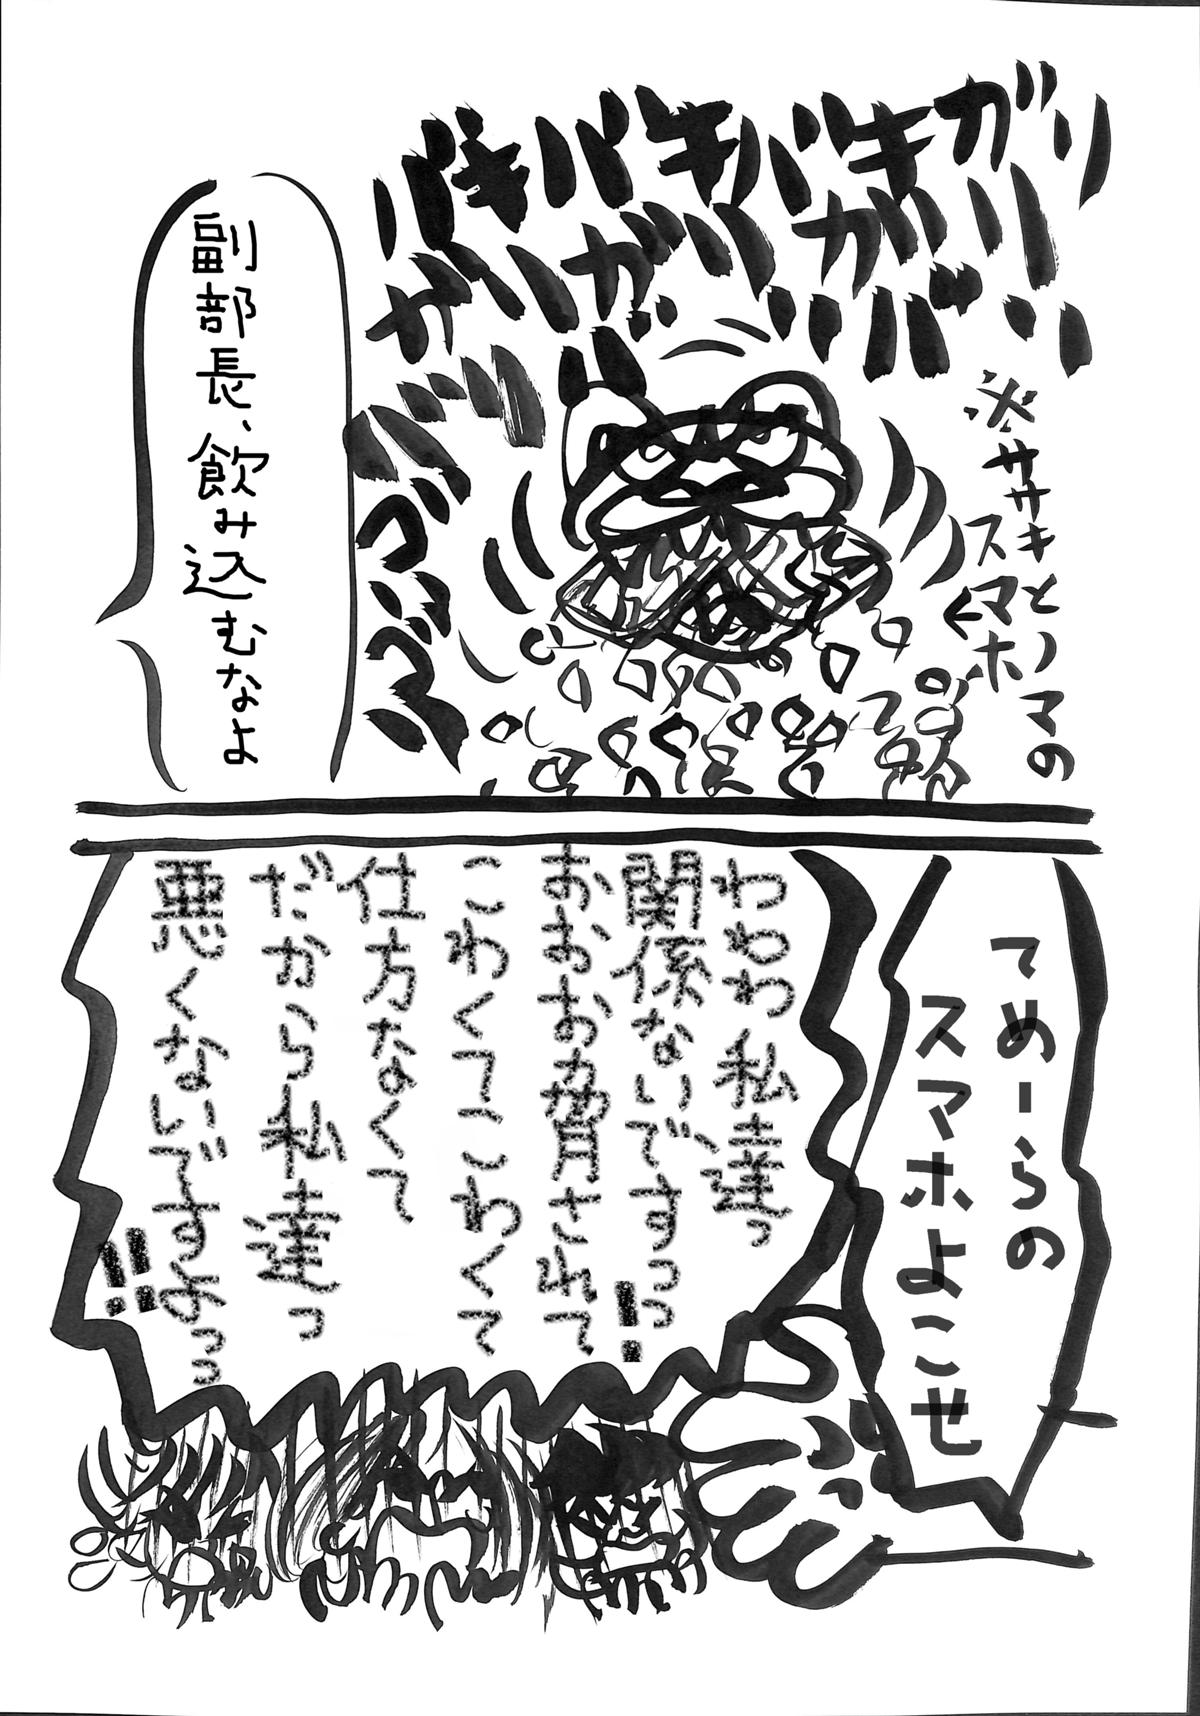 バキバキバキガリ
ガリガリガリガリ
バリバリ
※ササキとノマの
スマホ
副部長、飲み込むなよ
てめーらの
スマホよこせ
わわわ私達っ
関係ないですっっ!
おおおお脅されて
こわくてこわくて
仕方なくて
だから私達っ
悪くないですよっっ!!